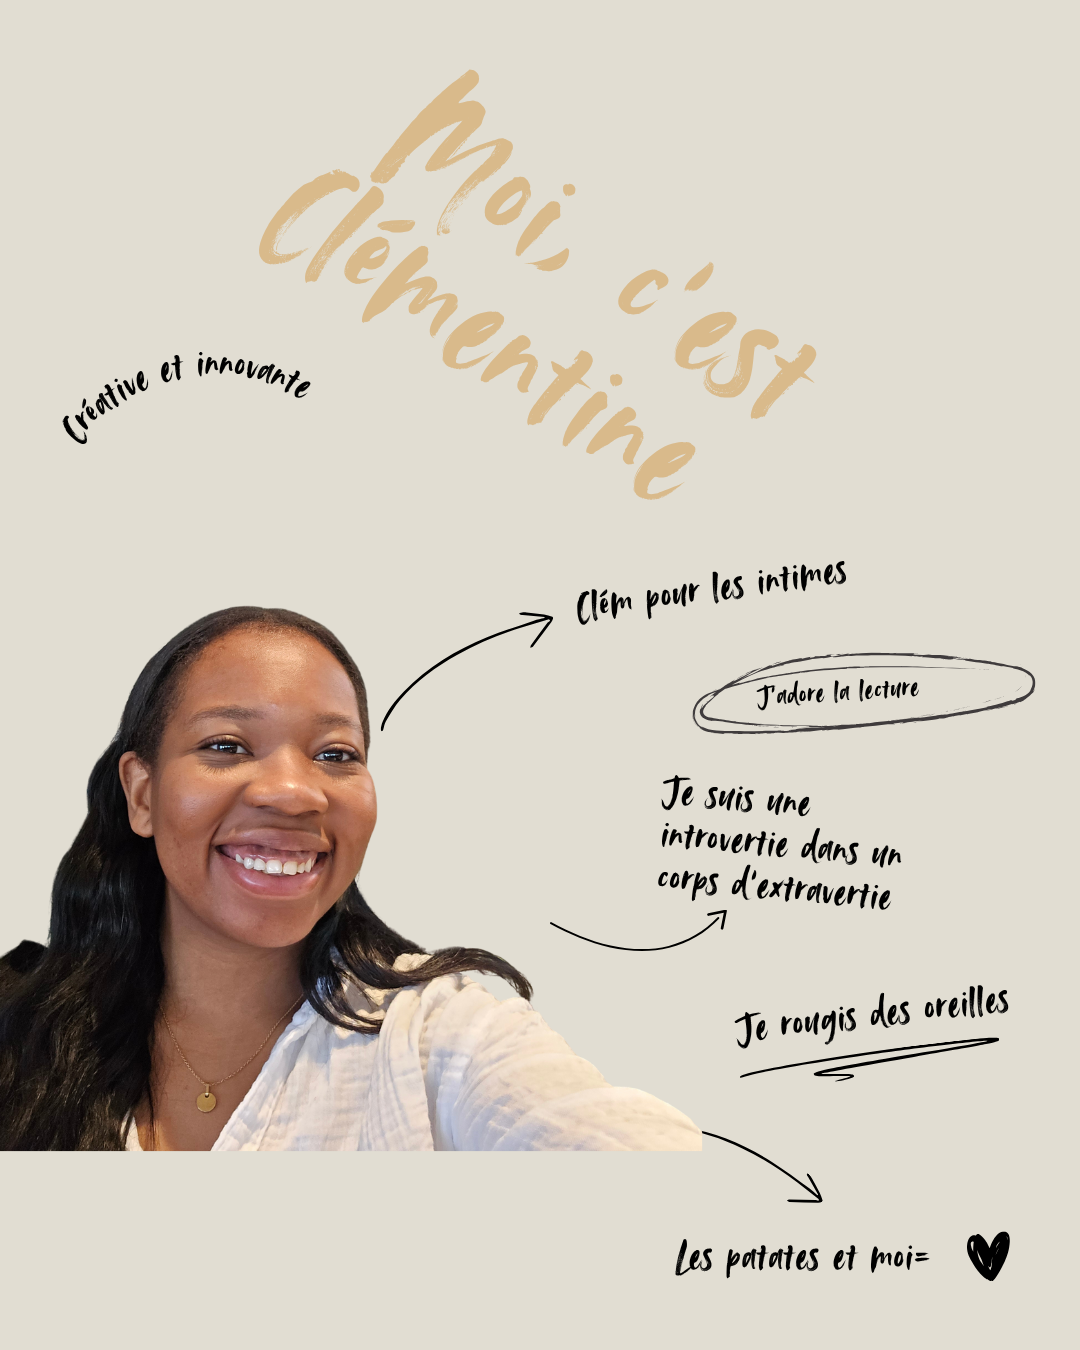 Moi, c'est
Clémentine
Créative et innovante
Clém pour les intimes
J'adore la lecture
Je suis une
introvertie dans un
corps d'extravertie
Je rougis des oreilles
Les patates et moi=